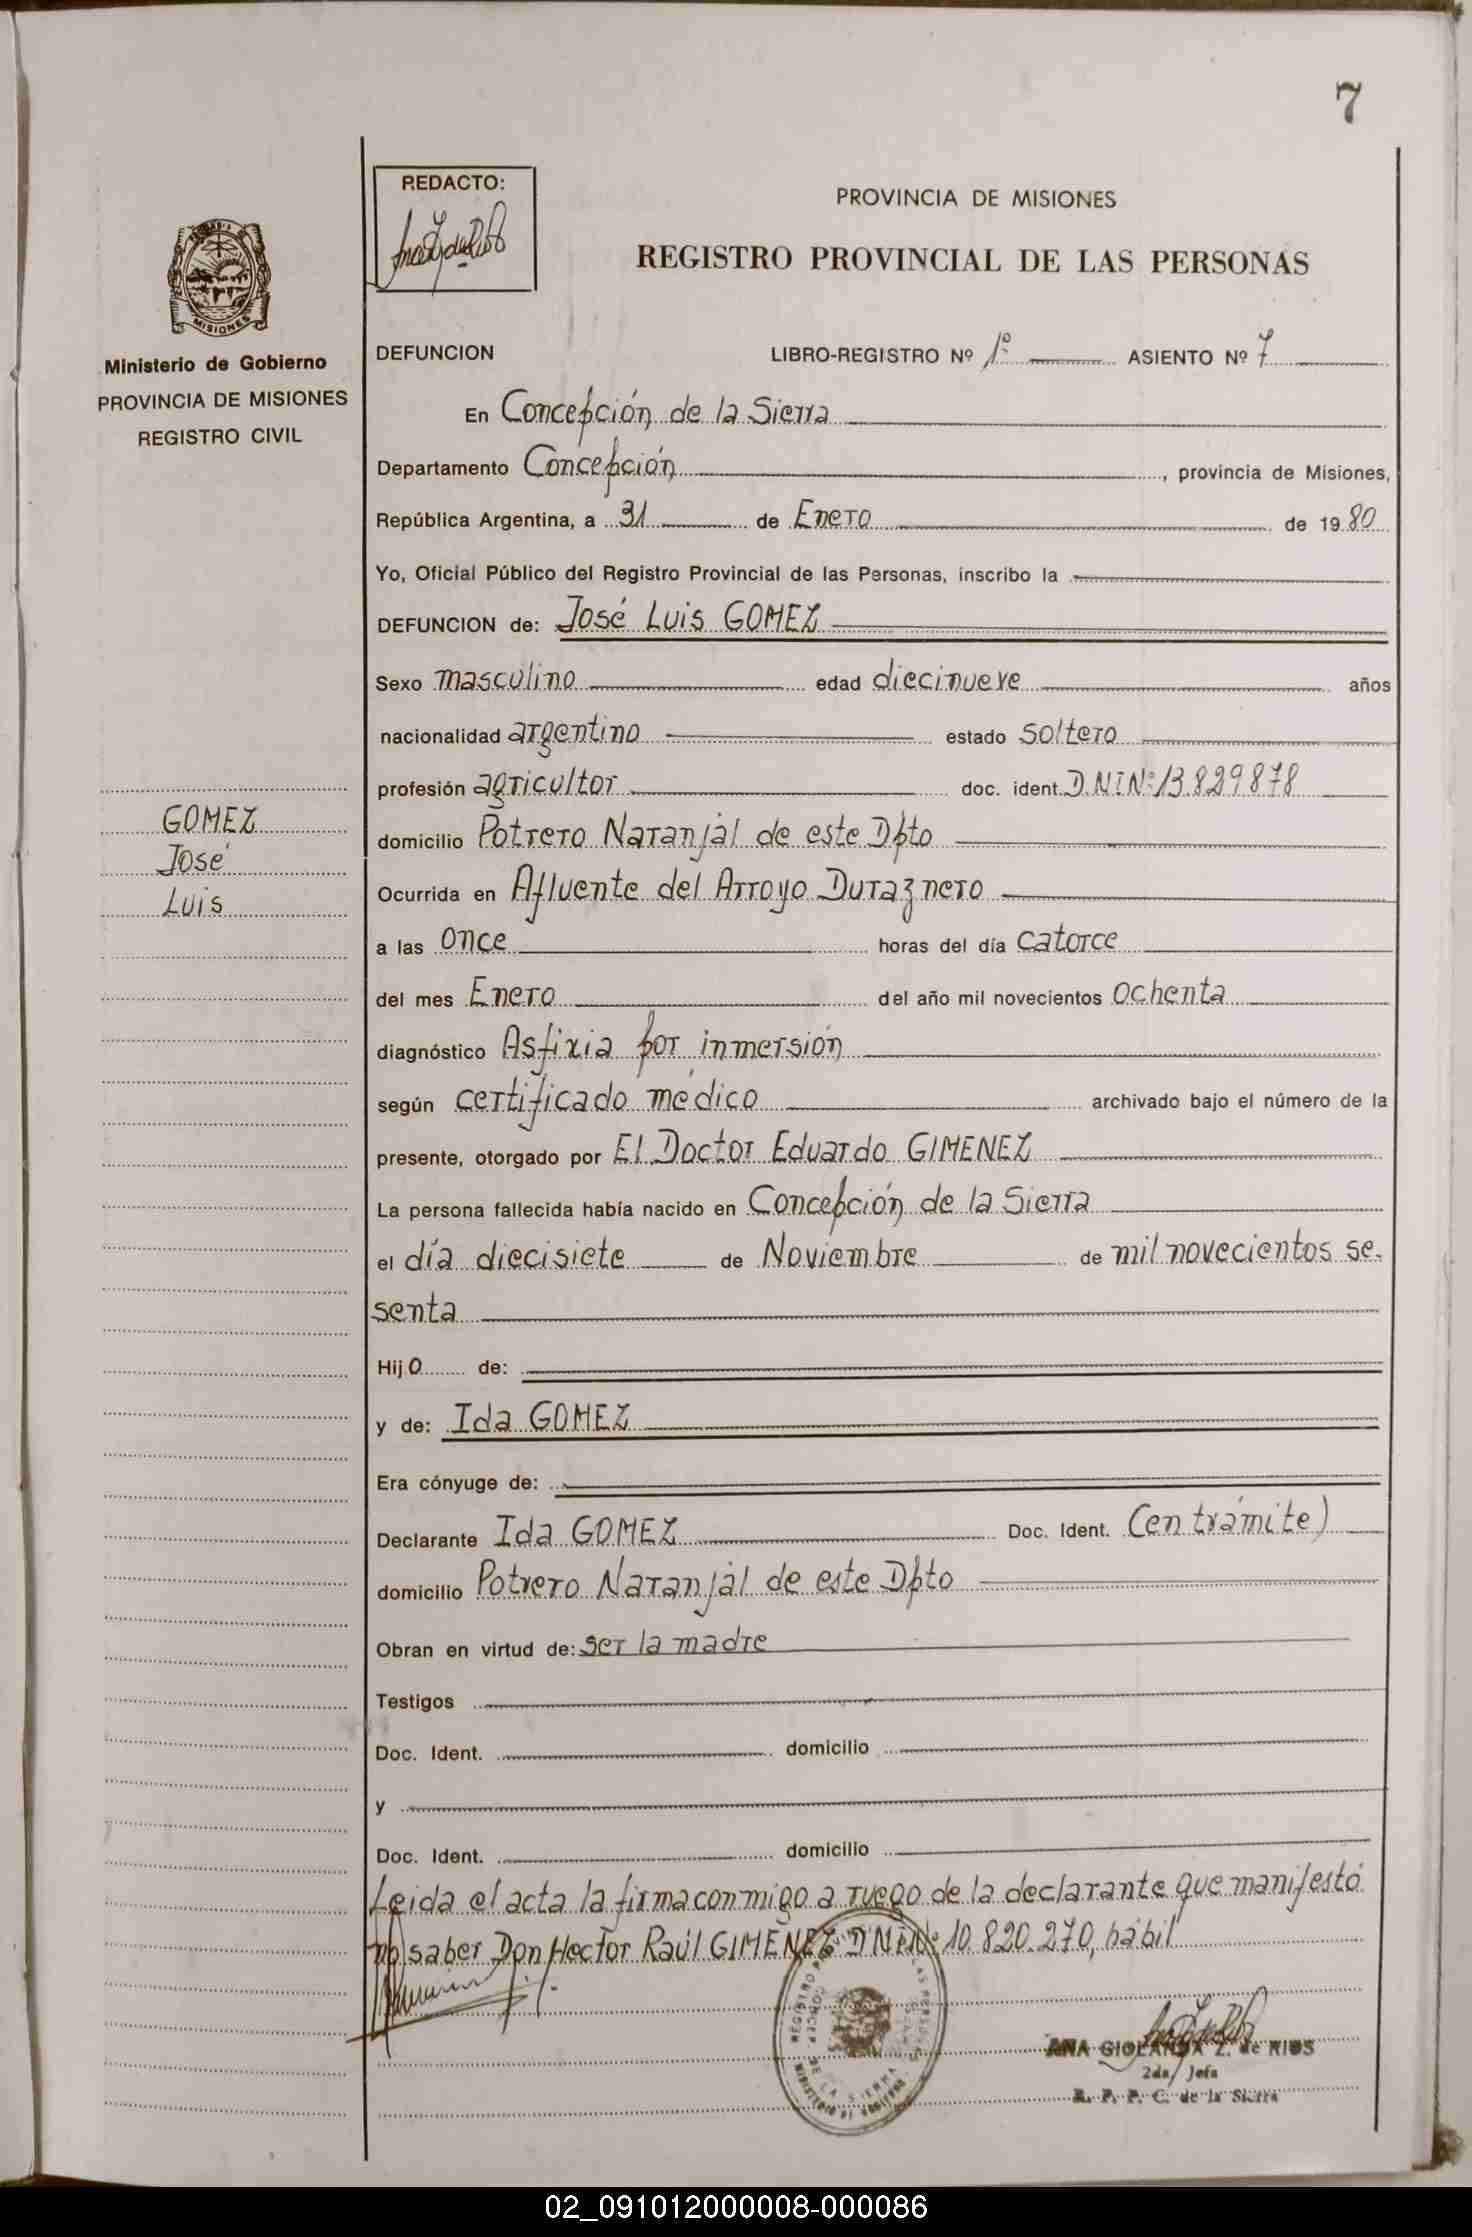 7
REDACTO:
PROVINCIA DE MISIONES
REGISTRO PROVINCIAL DE LAS PERSONAS
MISIONES
Ministerio de Gobierno
PROVINCIA DE MISIONES
REGISTRO CIVIL
DEFUNCION LIBRO-REGISTRO Nº 1º ASIENTO Nº 7
En Concepción de la Sierra
Departamento Concepción, provincia de Misiones,
República Argentina, a 31 de Enero de 1980
Yo, Oficial Público del Registro Provincial de las Personas, inscribo la
DEFUNCION de: José Luis GOMEZ
Sexo masculino edad diecinueve años
nacionalidad argentino estado soltero
profesión agricultor doc. ident. D.N.I Nº 13.829878
GOMEZ
José
Luis
domicilio Potrero Naranjal de este Dpto
Ocurrida en Afluente del Arroyo Duraznero
a las once horas del día catorce
del mes Enero del año mil novecientos ochenta
diagnóstico Asfixia por inmersión
según certificado médico archivado bajo el número de la
presente, otorgado por El Doctor Eduardo GIMENEZ
La persona fallecida había nacido en Concepción de la Sierra
el día diecisiete de Noviembre de mil novecientos se-
senta
Hijo de:
y de: Ida GOMEZ
Era cónyuge de:
Declarante Ida GOMEZ Doc. Ident. (en trámite)
domicilio Potrero Naranjal de este Dpto
Obran en virtud de: ser la madre
Testigos
Doc. Ident. domicilio
y
Doc. Ident. domicilio
Leida el acta la firma conmigo a ruego de la declarante que manifestó
no saber Don Hector Raúl GIMENEZ DNI Nº 10.820.270, hábil
ANA GIOLANDA Z. de RIOS
2da. Jefa
R. P. P. C. de la Sierra
02_091012000008-000086